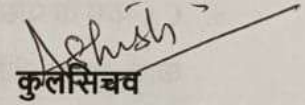 Ashish
कुलसिचव